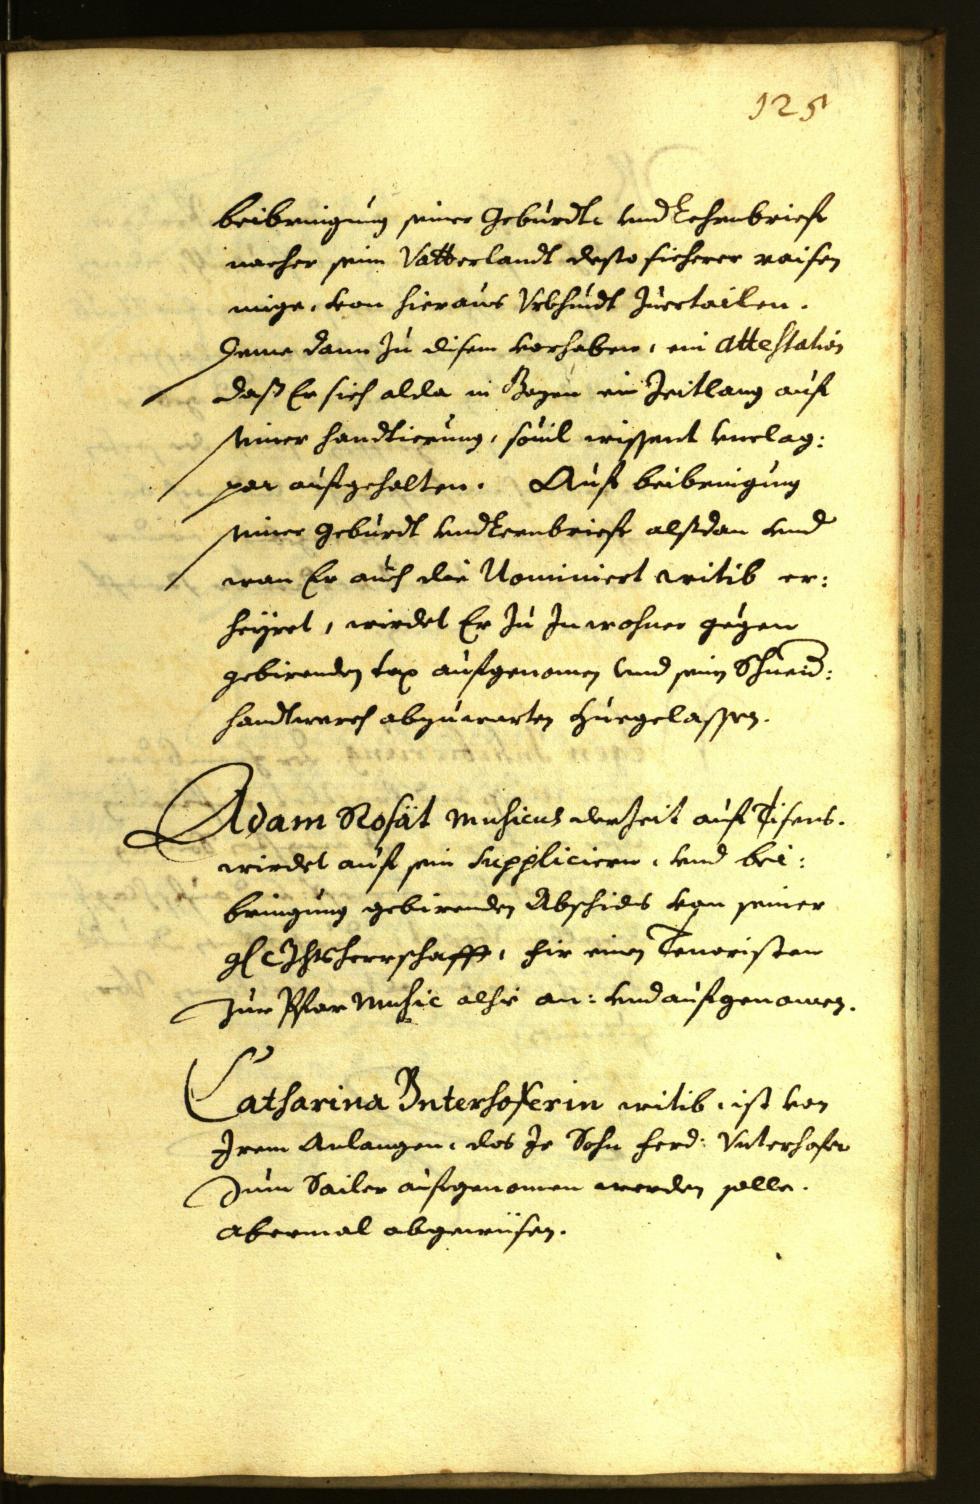 125
beibringung seiner Geburdts und Lehrnbrieff
nacher sein Vatterlandt desto sicherer raisen
mige, von hieraus Vrkhundt zuertailen.
Jeme dann zu disem vorhaben, ein attestation
daß Er sich alda in Bozen ein Zeitlang auf
seiner handtierung, souil wissent vnclag:
par aufgehalten. Auf beibringung
seiner Geburdt und Lernbrieff alßdan vnd
wan Er auch die Nominiert witib er:
heyret, wirdet Er zu Inwohner gegen
gebirenden tax aufgenomen vnd sein Schneid:
handtwerch abzuwarten zuegelassen.
Adam Rosät Musicus derzeit auf Tisens.
wirdet auf sein suppliciern, vnd bei:
bringung gebirenden Abschids von seiner
herrschafft, fir einen Tenoristen
zur Pfar Music alhie an: vnd aufgenomen.
Catharina Vnterhoferin witib, ist von
Irem Anlangen, das Ir Sohn Ferd: Vnterhofer
zum Sailer aufgenomen werden solle.
abermal abgewisen.